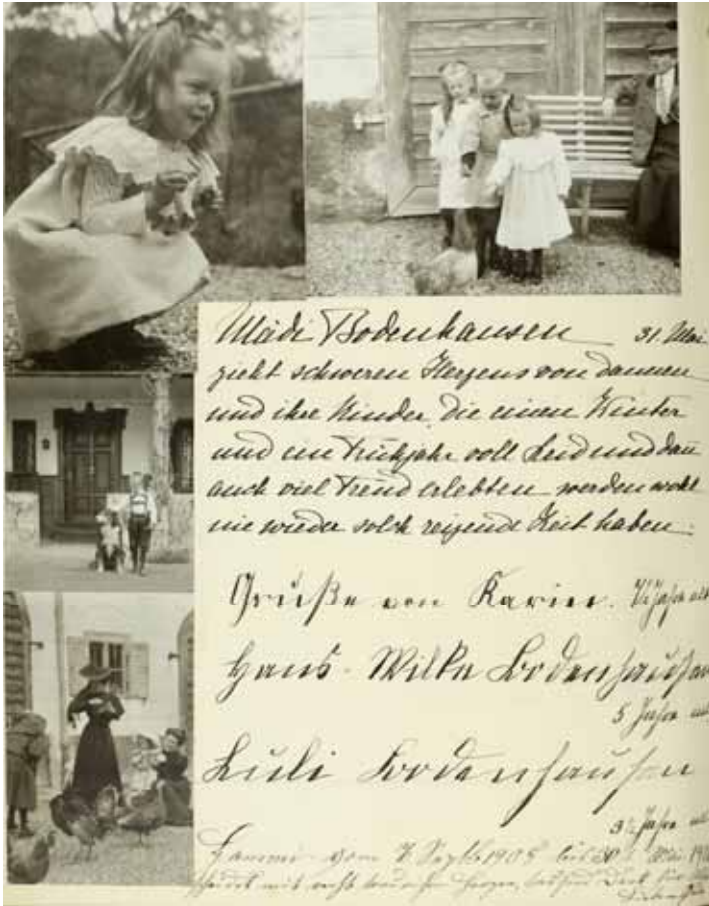 Mädi Bodenhausen 31. Mai
zieht schweren Herzens von dannen
und ihre Kinder, die einen Winter
und ein Frühjahr voll Leid und dann
auch viel Freud erlebten werden wohl
nie wieder solch reizende Zeit haben.
Grüße von Karin. 7½ Jahre alt
Hans-Wilke Bodenhausen
5 Jahre alt
Luli Bodenhausen
3½ Jahre alt
vom 7. Septb 1905 bis 30. Mai
scheidet mit recht Herzen, tausend Dank für